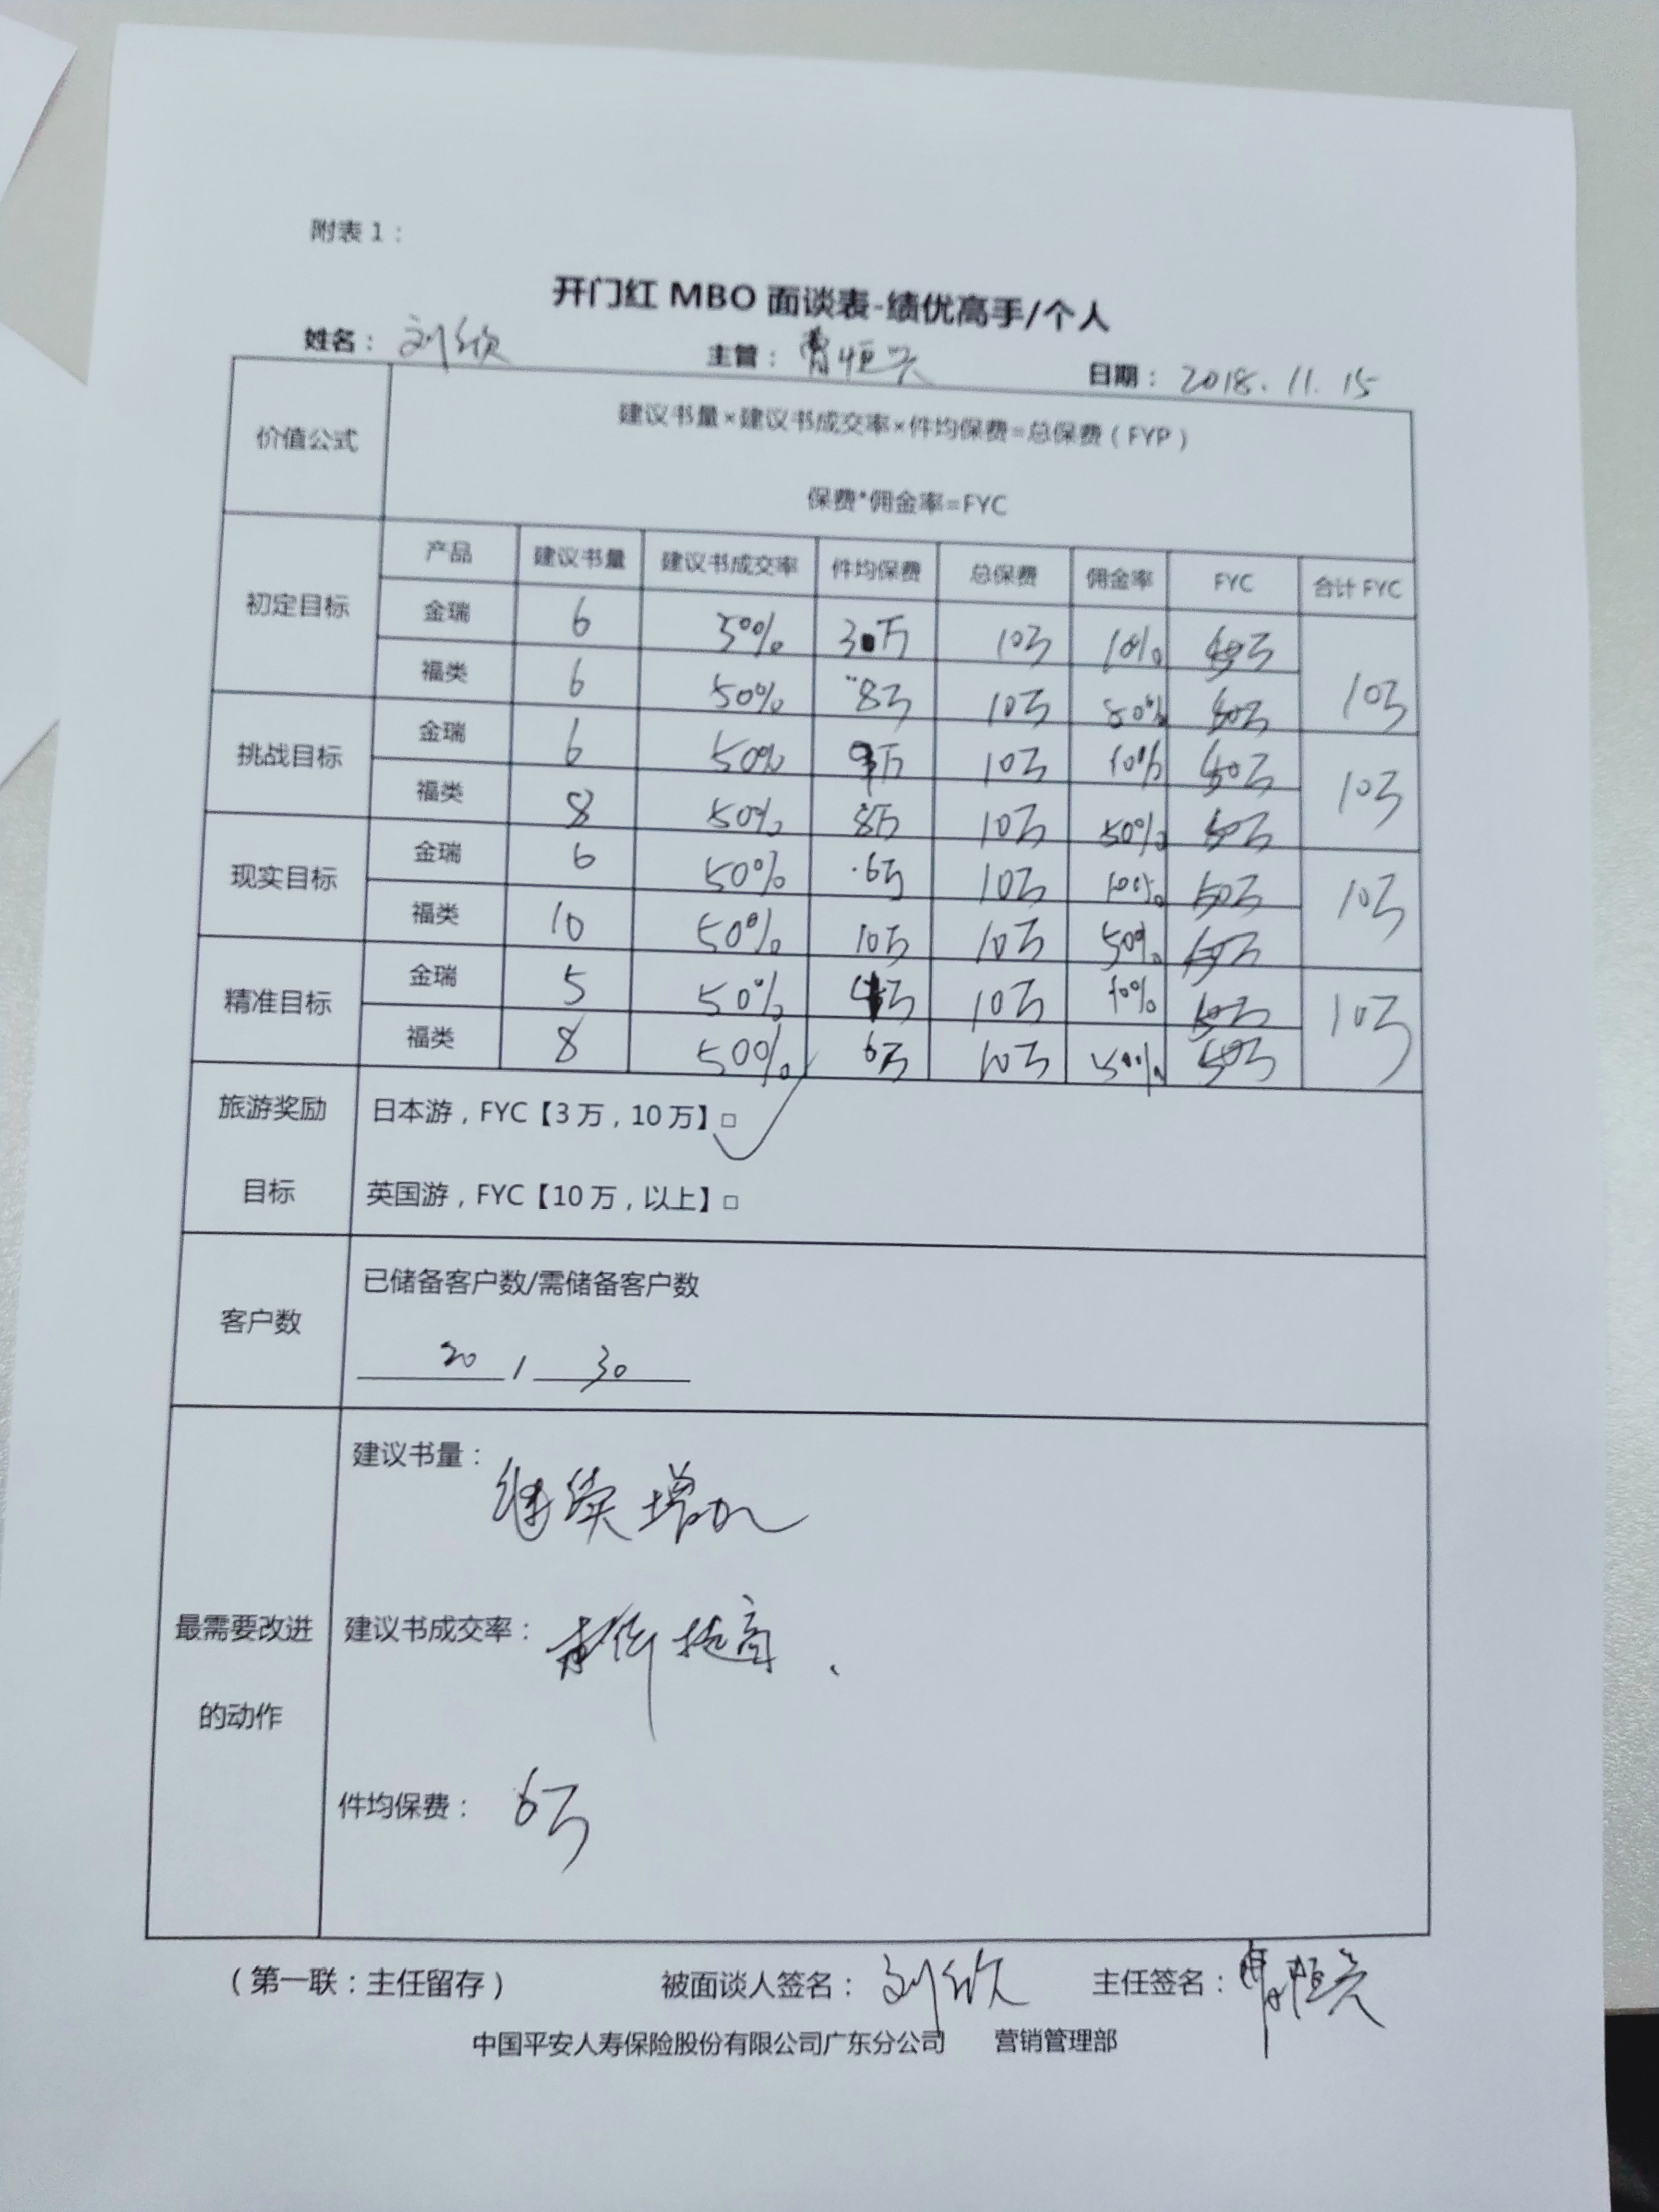 附表 1：
开门红 MBO 面谈表-绩优高手/个人
姓名： 刘欣 主管： 曹恒兴 日期： 2018.11.15
价值公式 建议书量×建议书成交率×件均保费=总保费（FYP）
保费*佣金率=FYC
初定目标 产品 建议书量 建议书成交率 件均保费 总保费 佣金率 FYC 合计 FYC
金瑞 6 50% 10万 10%
福类 6 50% 8万 10万 10万
挑战目标 金瑞 6 50% 10万 10%
福类 8 50% 8万 10万 50% 10万
现实目标 金瑞 6 50% 6万 10万
福类 10 50% 10万 10万 50% 10万
精准目标 金瑞 5 50% 10万 10%
福类 8 50% 6万 10万 50% 50万 10万
旅游奖励
目标
日本游，FYC【3 万，10 万】□
英国游，FYC【10 万，以上】□
客户数 已储备客户数/需储备客户数
20 / 30
最需要改进
的动作
建议书量： 继续增加
建议书成交率： 提高
件均保费： 6万
（第一联：主任留存） 被面谈人签名： 刘欣 主任签名： 曹恒兴
中国平安人寿保险股份有限公司广东分公司 营销管理部